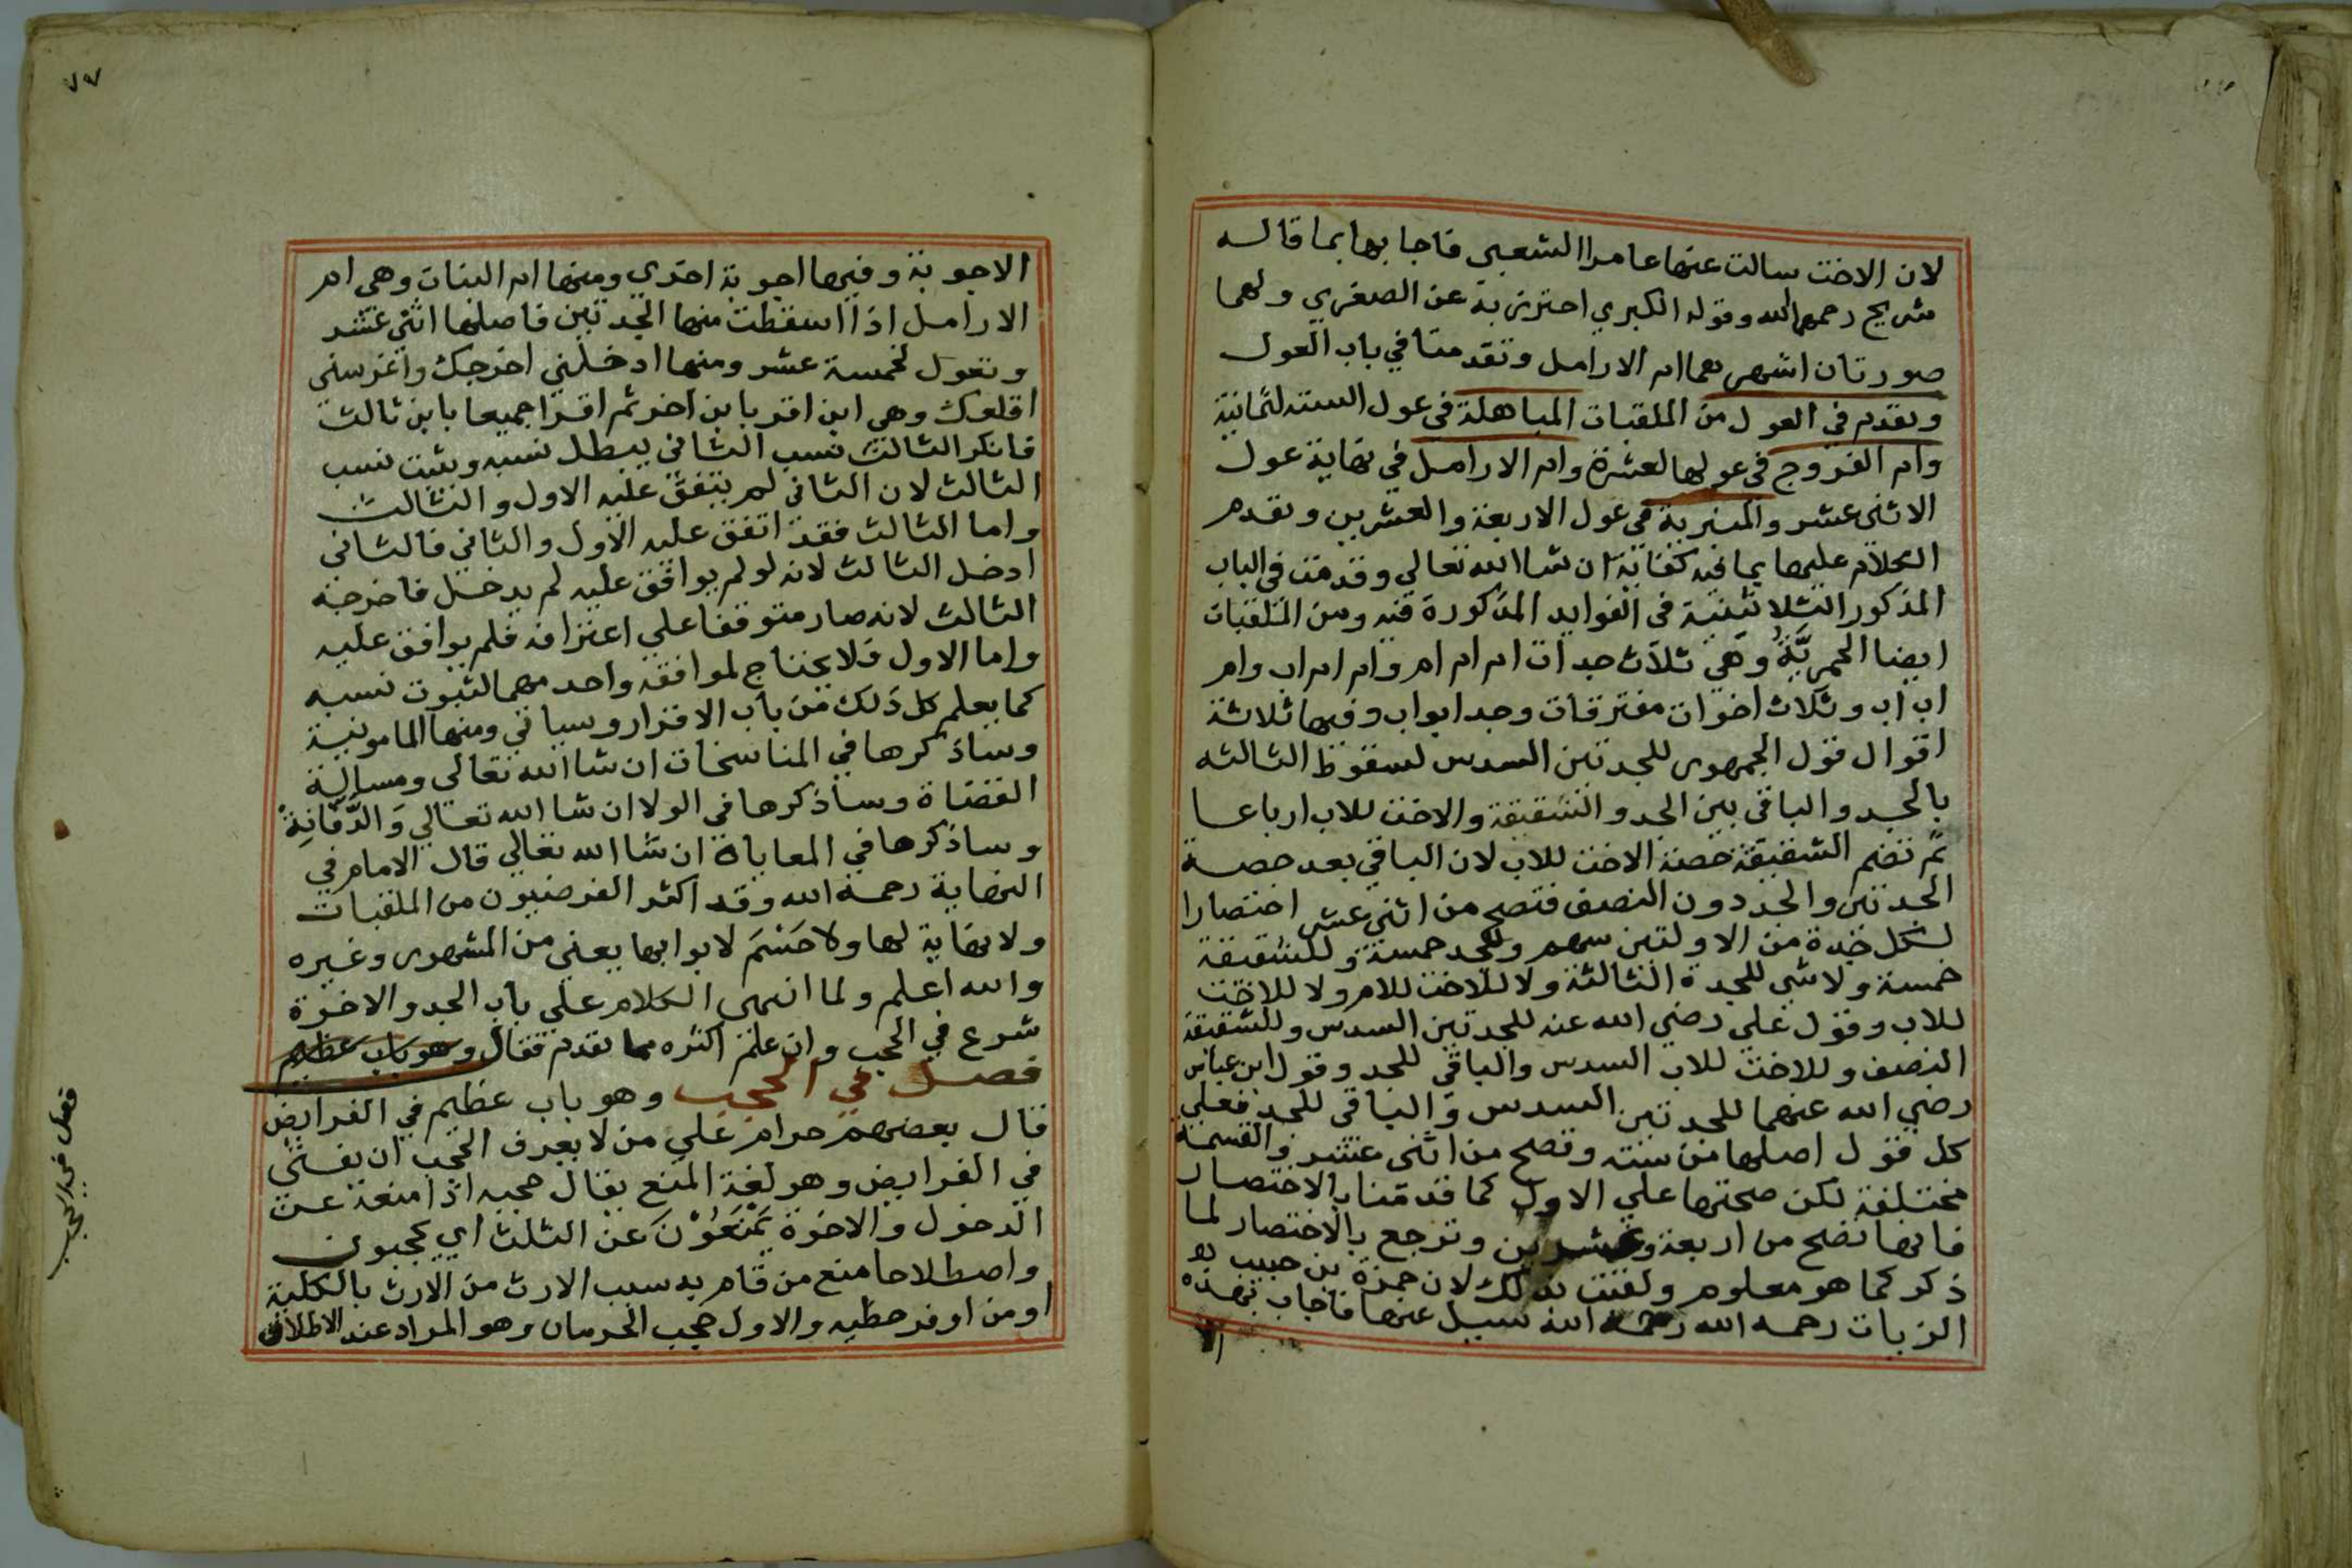 لان الاخت سالت عنها عامرا الشعبى فاجابها بما قاله
شريح رحمهم الله وقوله الكبري احترز به عن الصغري ولهما
صورتان اشهرهما ام الارامل وتقدمتا في باب العول
وتقدم في العول من الملقبات المباهلة في عول الستة لثمانية
وام الفروج في عولها لعشرة وام الارامل في نهاية عول
الاثنى عشر والمنبرية في عول الاربعة والعشرين وتقدم
الكلام عليها بما فيه كفاية ان شا الله تعالي وقدمت في الباب
المذكور الثلاثينية فى الفوايد المذكورة فيه ومن الملقبات
ايضا الحمزيَّةُ وهَي ثلاث جدات ام ام ام وام ام اب وام
اب اب وثلاث اخوات مفترقات وجد ابو اب وفيها ثلاثة
اقوال قول الجمهور للجدتين السدس لسقوط الثالثه
بالجد والباقي بين الجد والشقيقة والاخت للاب ارباعا
ثم تضم الشقيقة حصة الاخت للاب لان الباقي بعد حصة
الجدتين والجد دون النصف فتصح من اثني عشر اختصارا
لكل جدة من الاولتين سهم وللجد خمسة وللشقيقة
خمسة ولا شى للجدة الثالثة ولا للاخت للام ولا للاخت
للاب وقول علي رضي الله عنه للجدتين السدس وللشقيقة
النصف وللاخت للاب السدس والباقي للجد وقول ابن عباس
رضي الله عنهما للجدتين السدس والباقي للجد فعلي
كل قول اصلها من سته وتصح من اثنى عشر والقسمة
مختلفة لكن صحتها علي الاول كما قدمنا بالاختصار
فانها تصح من اربعة وعشرين وترجع بالاختصار لما
ذكر كما هو معلوم ولقبت بذلك لان حمزة بن حبيب
الزيات رحمه الله رحمه الله سيل عنها فاجاب بهذه
٧٧
الاجوبة وفيها اجوبة اخري ومنها ام البنات وهي ام
الارامل اذا اسقطت منها الجدتين فاصلها اثني عشر
وتعول لخمسة عشر ومنها ادخلني اخرجك واغرسني
اقلعك وهي ابن اقر بابن اخر ثم اقرا جميعا بابن ثالث
فانكر الثالث نسب الثاني يبطل نسبه ويثبت نسب
الثالث لان الثاني لم يتفق عليه الاول والثالث
واما الثالث فقد اتفق عليه الاول والثاني فالثاني
ادخل الثالث لانه لو لم يوافق عليه لم يدخل فاخرجه
الثالث لانه صار متوقفا علي اعترافه فلم يوافق عليه
واما الاول فلا يحتاج لموافقة واحد منهما لثبوت نسبه
كما يعلم كل ذلك من باب الاقرار وسياتي ومنها المامونية
وساذكرها في المناسخات ان شا الله تعالى ومسالة
القضاة وساذكرها في الولا ان شا الله تعالي وَالدَّفَّانَةُ
وساذكرها في المعاياة ان شا الله تعالي قال الامام في
النهاية رحمه الله وقد اكثر الفرضيون من الملقبات
ولا نهاية لها ولا حَسْمَ لابوابها يعني من المشهور وغيره
والله اعلم ولما انهى الكلام علي باب الجد والاخوة
شرع في الحجب وان علم اكثره مما تقدم فقال وهو باب عظيم
فصل في الحجب وهو باب عظيم في الفرايض
قال بعضهم حرام علي من لا يعرف الحجب ان يفتى
في الفرايض وهو لغة المنع يقال حجبه اذا منعه عن
الدخول والاخوة يَمْنَعُوْنَ عن الثلث اي يحجبون
واصطلاحا منع من قام به سبب الارث من الارث بالكلية
او من اوفر حظيه والاول حجب الحرمان وهو المراد عند الاطلاق
فصل في الحجب